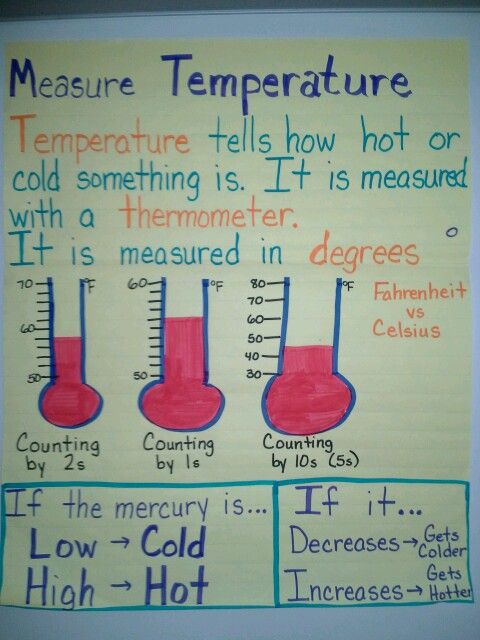 Measure Temperature
Temperature tells how hot or
cold something is. It is measured
with a thermometer.
It is measured in degrees °
70 °F
60
50
60 °F
50
80 °F
70
60
50
40
30
Fahrenheit
vs
Celsius
Counting
by 2s
Counting
by 1s
Counting
by 10s (5s)
If the mercury is...
Low → Cold
High → Hot
If it...
Decreases → Gets
Colder
Increases → Gets
Hotter